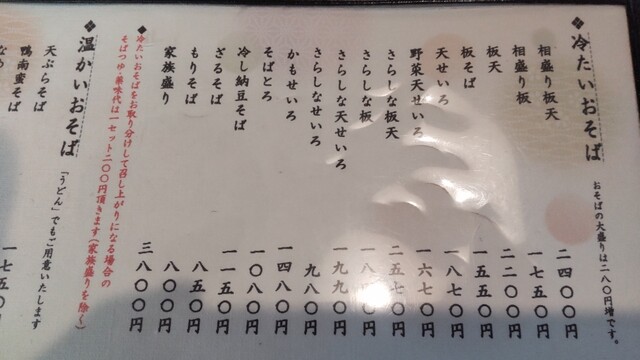 ❖冷たいおそば おそばの大盛りは二八〇円増です。
相盛り板天 二四〇〇円
相盛り板 一七五〇円
板天 二二〇〇円
板そば 一五五〇円
天せいろ 一八七〇円
野菜天せいろ 一六七〇円
さらしな板天 二五七〇円
さらしな板
さらしな天せいろ 一九九〇円
さらしなせいろ 九八〇円
かもせいろ 一四八〇円
そばとろ 一〇八〇円
冷し納豆そば 一一五〇円
ざるそば 八五〇円
もりそば 八〇〇円
家族盛り 三八〇〇円
◆冷たいおそばをお取り分けして召し上がりになる場合の
そばつゆ・薬味代は一セット二〇〇円頂きます(家族盛りを除く)
❖温かいおそば 「うどん」でもご用意いたします
天ぷらそば
鴨南蛮そば 一七五〇円